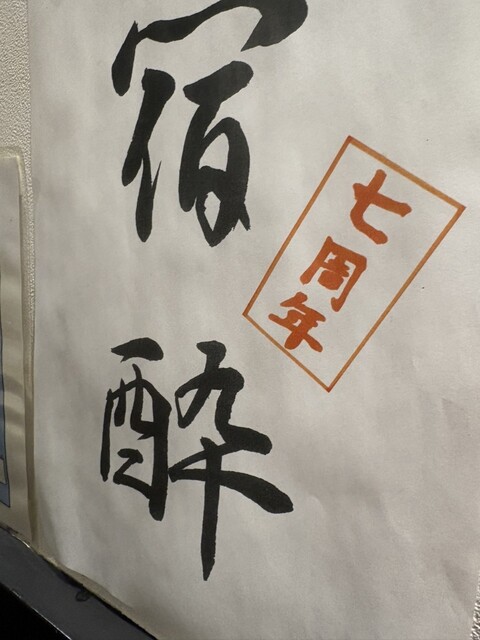 宿酔
七周年